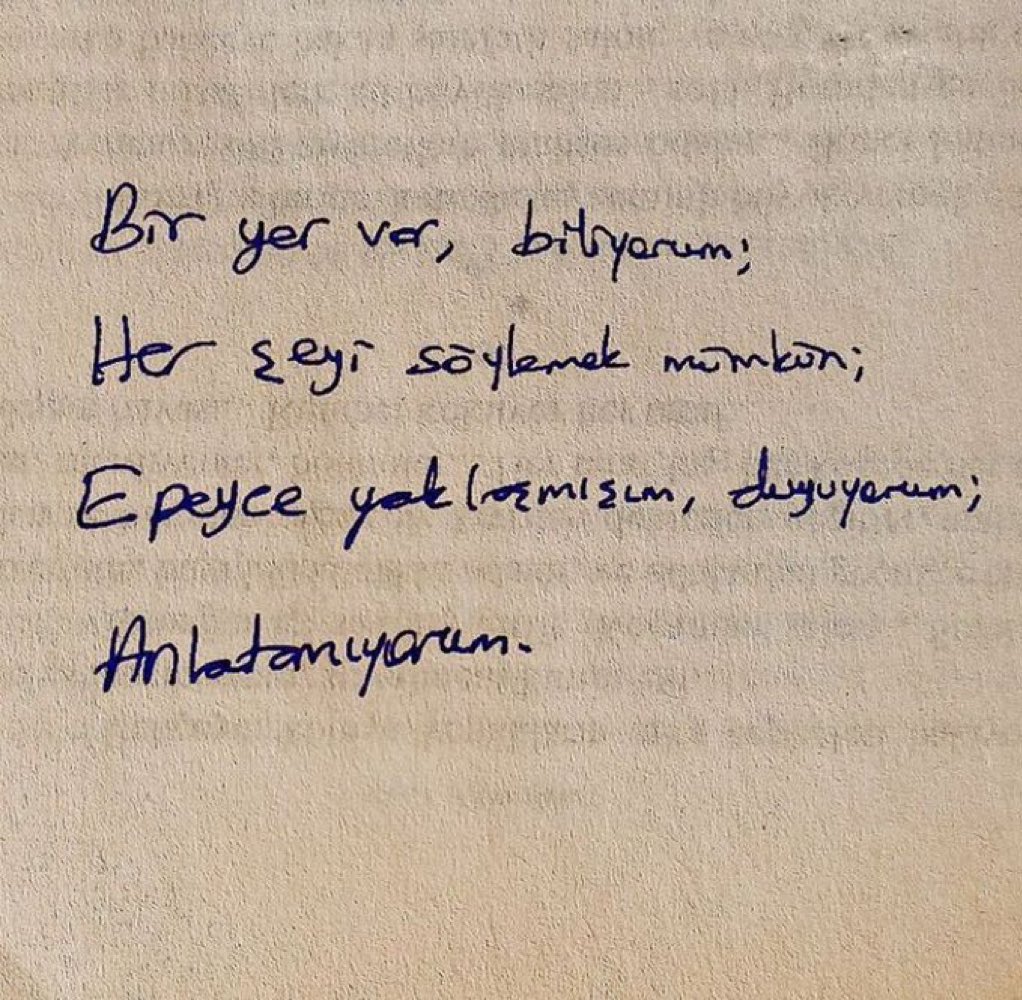 Bir yer var, biliyorum;
Her şeyi söylemek mümkün;
Epeyce yaklaşmışım, duyuyorum;
Anlatamıyorum.